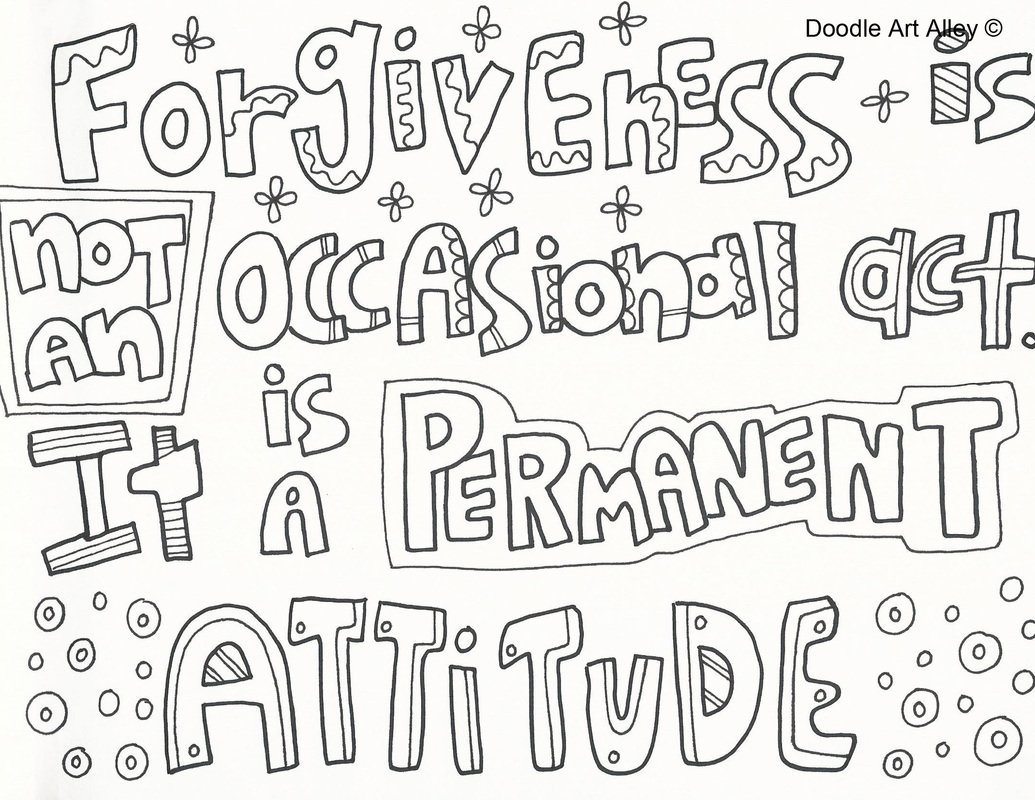 Doodle Art Alley ©
ForgivEnEss is
not an OccAsional act.
It is A PERMANENT
ATTiTUDE